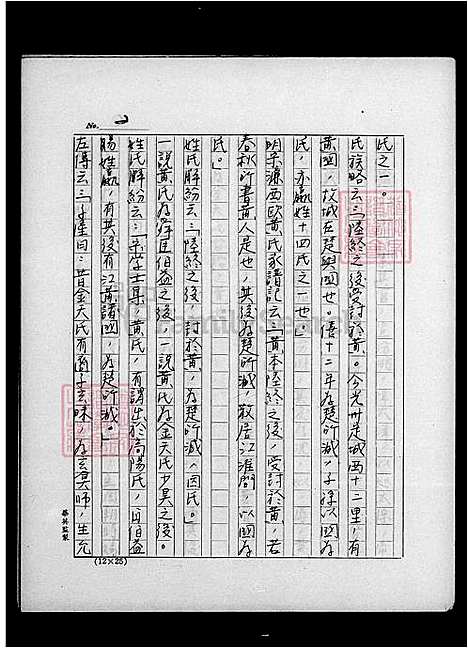 No. 2
氏之一。
氏族略云:「陸終之後受封於黃。今光州定城西十二里,有
黃國,故城在楚與國也。僖十二年為楚所滅,子孫以國為
氏,亦嬴姓十四氏之一也」
明宋濂西歐黃氏家譜記云:「黃本陸終之後,受封於黃,若
春秋所書黃人是也,其後為楚所滅,散居江淮間,以國為
氏。」
姓氏辨紛云:「陸終之後,封於黃,為楚所滅,因氏。」
一說黃氏為舜臣伯益之後。一說黃氏為金天氏少昊之後。
姓氏辨紛云:「宋學士集,黃氏,有謂出於高陽氏,曰伯益
賜姓嬴,有其後有江黃諸國,為楚所滅。」
左傳云:「子產曰:昔金天氏有裔子玄昧,為玄冥師,生允
(12×25)
華英監製
FamilySearch